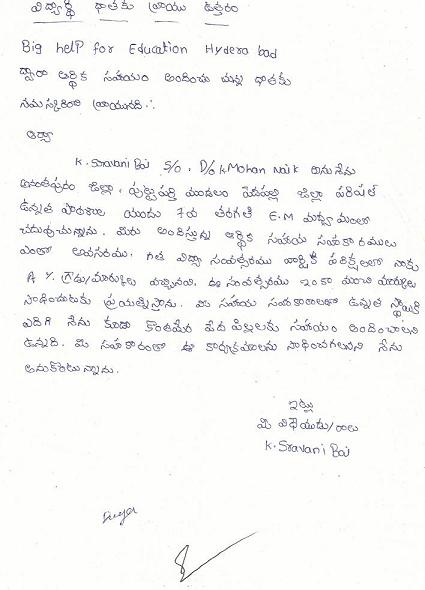 విద్యార్థి దాతకు వ్రాయు ఉత్తరం
Big help for Education Hydera bad
ద్వారా ఆర్థిక సహాయం అందించు చున్న దాతకు
నమస్కరించి వ్రాయునది.
ఆర్యా
K. Sravani Bai S/o, D/o K. Mohan Naik అను నేను
అనంతపురం జిల్లా, పుట్టపర్తి మండలం పెదపల్లి జిల్లా పరిషత్
ఉన్నత పాఠశాల యందు 7వ తరగతి E.M మాధ్యమంలో
చదువుచున్నాను. మీరు అందిస్తున్న ఆర్థిక సహాయ సహకారములు
ఎంతో అవసరము. గత విద్యా సంవత్సరము వార్షిక పరీక్షలలో నాకు
A %. గ్రేడు/మార్కులు వచ్చినవి. ఈ సంవత్సరము ఇంకా మంచి మార్కులు
సాధించుటకు ప్రయత్నిస్తాను. మీ సహాయ సహకారాలతో ఉన్నత స్థాయికి
ఎదిగి నేను కూడా కొంతమంది పేద పిల్లలకు సహాయం అందించాలని
ఉన్నది. మీ సహకారంతో ఈ కార్యక్రమాలను సాధించగలనని నేను
అనుకుంటున్నాను.
ఇట్లు
మీ విధేయుడు/రాలు
K. Sravani Bai